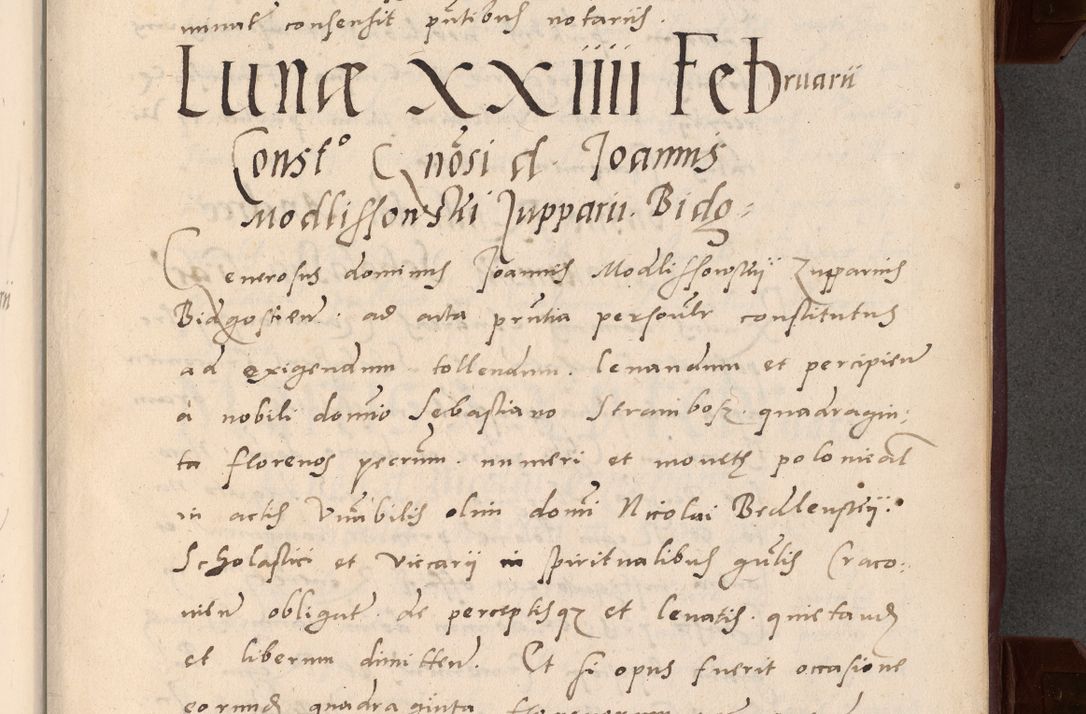 minat consensit pntibus notariis.
Lunæ XXIIII Februarii
Const° Gnosi d. Joannis
Modlissowskii Jupparii. Bidg:
Generosus dominus Joannis Modlissowskii Zupparius
Bidgostien. ad acta prntia personlr constitutus
ad exigendum tollendum. levandum et percipien
à nobili domino Sebastiano Strambosz quadragin:
ta florenos pecrum. numeri et monetę polonical
in actis Vnabilis olim domi Nicolai Bedlenskii.
Scholastici et Viccarii in spiritualibus gnlis Craco:
vien obligat de perceptisqz et levatis. quietand
et liberum dimitten. Et si opus fuerit occasione
eorund quadraginta florenorum